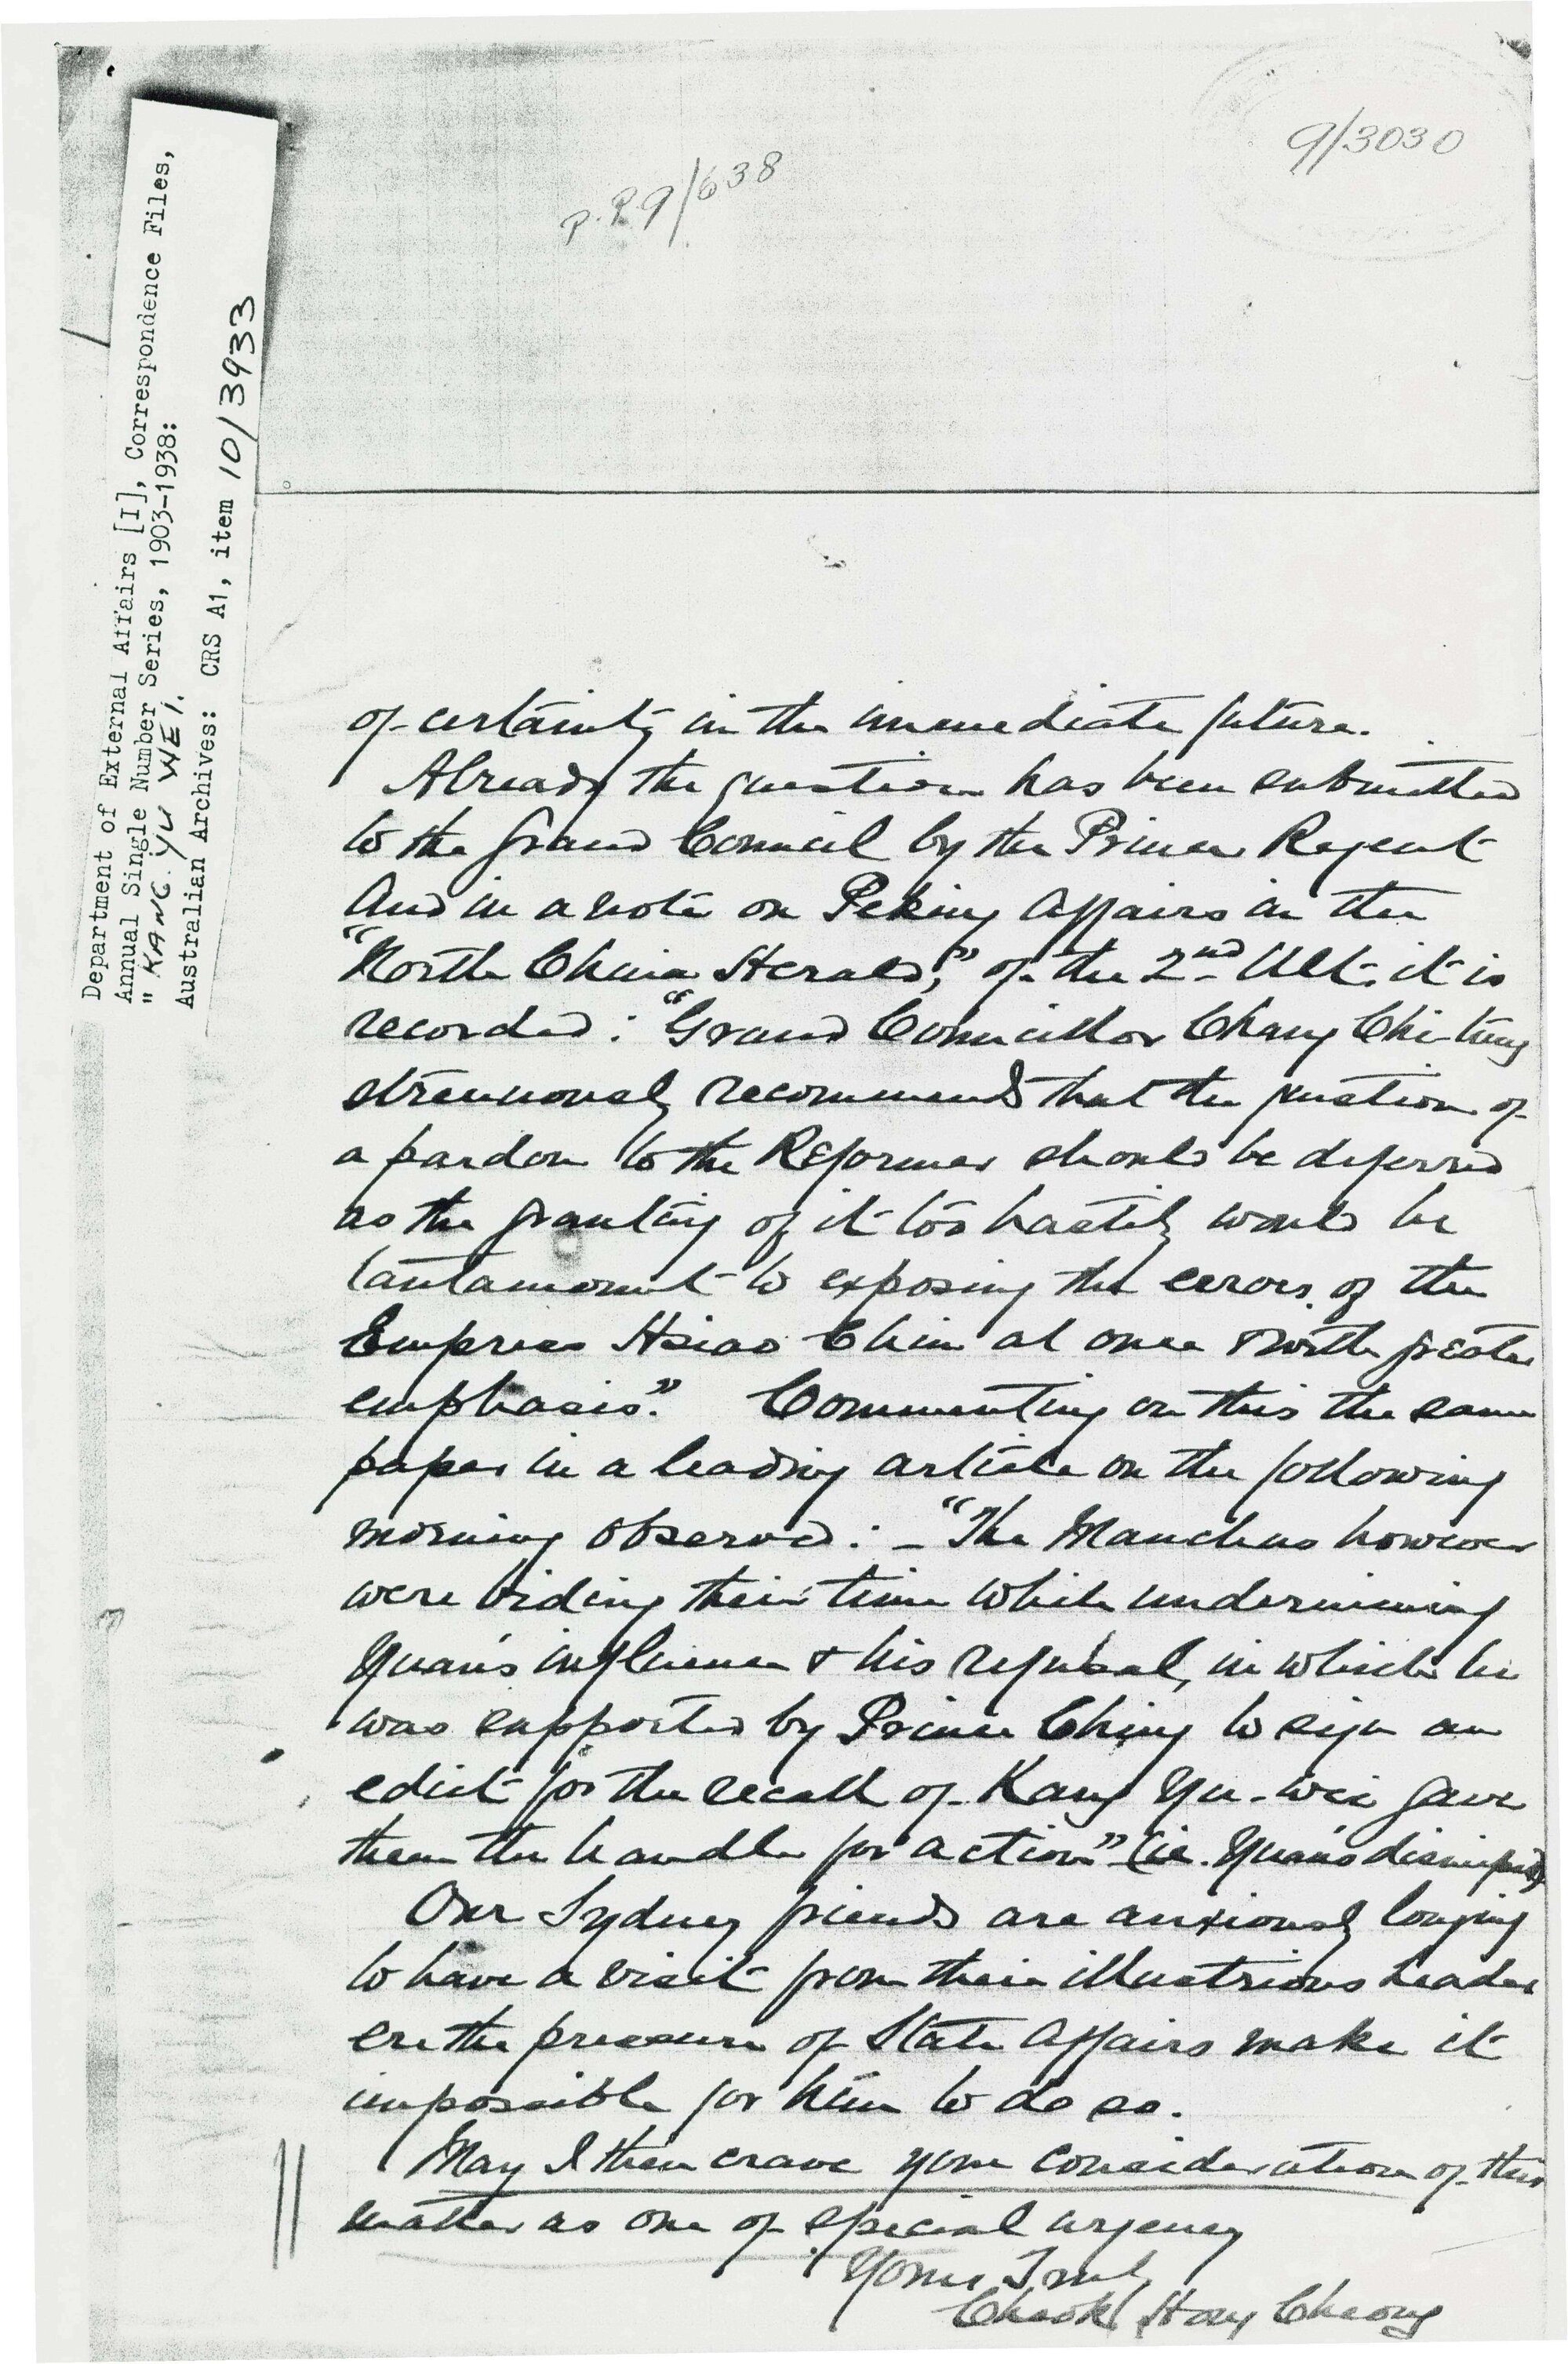 9/3030
p. R9/638
Department of External Affairs [I], Correspondence Files,
Annual Single Number Series, 1903-1938:
" KANG. YU WEI.
Australian Archives: CRS A1, item 10/3933
of certainty in the immediate future.
Already the question has been submitted
to the Grand Council by the Prince Regent
And in a note on Peking Affairs in the
"North China Herald," of the 2nd Ult. it is
recorded: "Grand Councillor Chang Chi-tung
strenuously recommends that the question of
a pardon to the Reformer should be deferred
as the granting of it too hastily would be
tantamount to exposing the errors of the
Empress Hsiao Chin at once & with greater
emphasis." Commenting on this the same
paper in a leading article on the following
morning observed: - "The Manchus however
were biding their time while undermining
Yuan's influence & his refusal, in which he
was supported by Prince Ching to sign an
edict for the recall of Kang Yu-wei gave
them the handle for action" (ie. Yuan's dismissal)
Our Sydney friends are anxiously longing
to have a visit from their illustrious leader
ere the pressure of State Affairs make it
impossible for him to do so.
May I then crave your consideration of this
matter as one of special urgency
Yours Truly
Cheok Hong Cheong